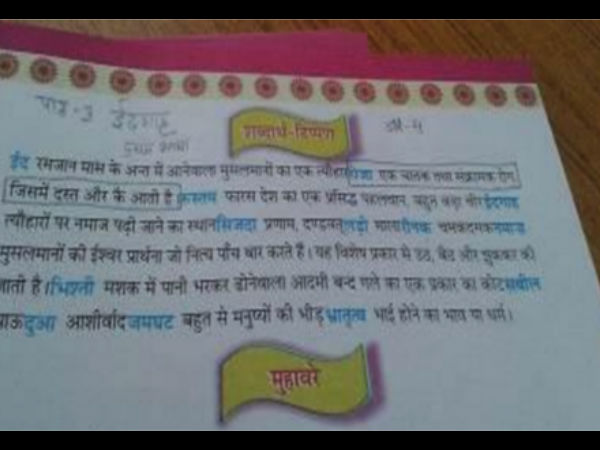 पाठ-3 ईदगाह
प्रेमचंद
शब्दार्थ-टिप्पण
ईद रमजान मास के अन्त में आनेवाला मुसलमानों का एक त्यौहार एक घातक तथा संक्रामक रोग
जिसमें दस्त और कै आती है रूस्तम फारस देश का एक प्रसिद्ध पहलवान, बहुत बड़ा वीर ईदगाह
त्यौहारों पर नमाज पढ़ी जाने का स्थान सिजदा प्रणाम, दण्डवत् लड़ी माला रौनक चमकदमक नमाज
मुसलमानों की ईश्वर प्रार्थना जो नित्य पाँच बार करते हैं। यह विशेष प्रकार से उठ, बैठ और झुककर की
जाती है। भिश्ती मशक में पानी भरकर ढोनेवाला आदमी बन्द गले का एक प्रकार का कोट सबील
प्याऊ दुआ आशीर्वाद जमघट बहुत से मनुष्यों की भीड़ भ्रातृत्व भाई होने का भाव या धर्म।
मुहावरे